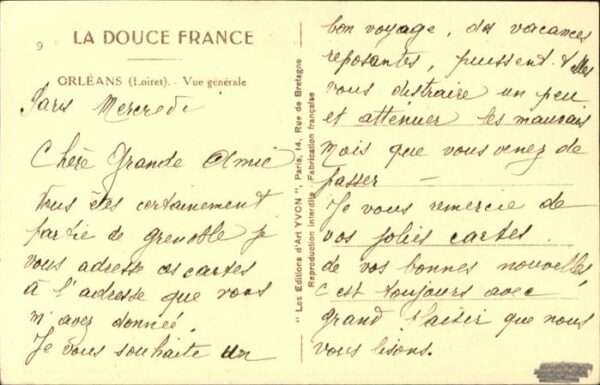 9
LA DOUCE FRANCE
ORLÉANS (Loiret). - Vue générale
Paris Mercredi
Chère Grande Amie
tous êtes certainement
partie de grenoble je
vous adresse ces cartes
à l'adresse que vous
m'avez donnée.
Je vous souhaite un
" Les Éditions d'Art YVON ", Paris, 14, Rue de Bretagne
Reproduction interdite - Fabrication française
bon voyage, des vacances
reposantes, puissent-elles
vous distraire un peu
et atténuer les mauvais
mois que vous venez de
passer —
Je vous remercie de
vos jolies cartes.
de vos bonnes nouvelles
c'est toujours avec
grand plaisir que nous
vous lisons.